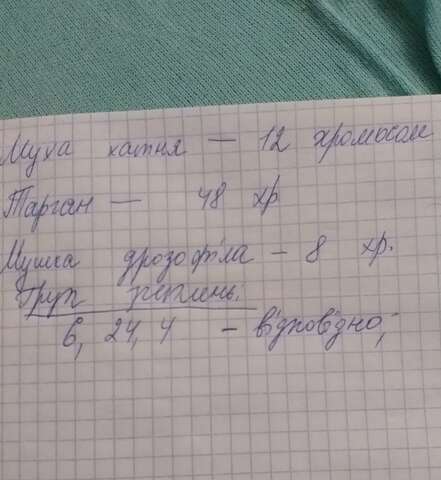 Муха хатня — 12 хромосом
Тарган — 48 хр
Мушка дрозофіла – 8 хр.
Груп зчеплень:
6, 24, 4 – відповідно;